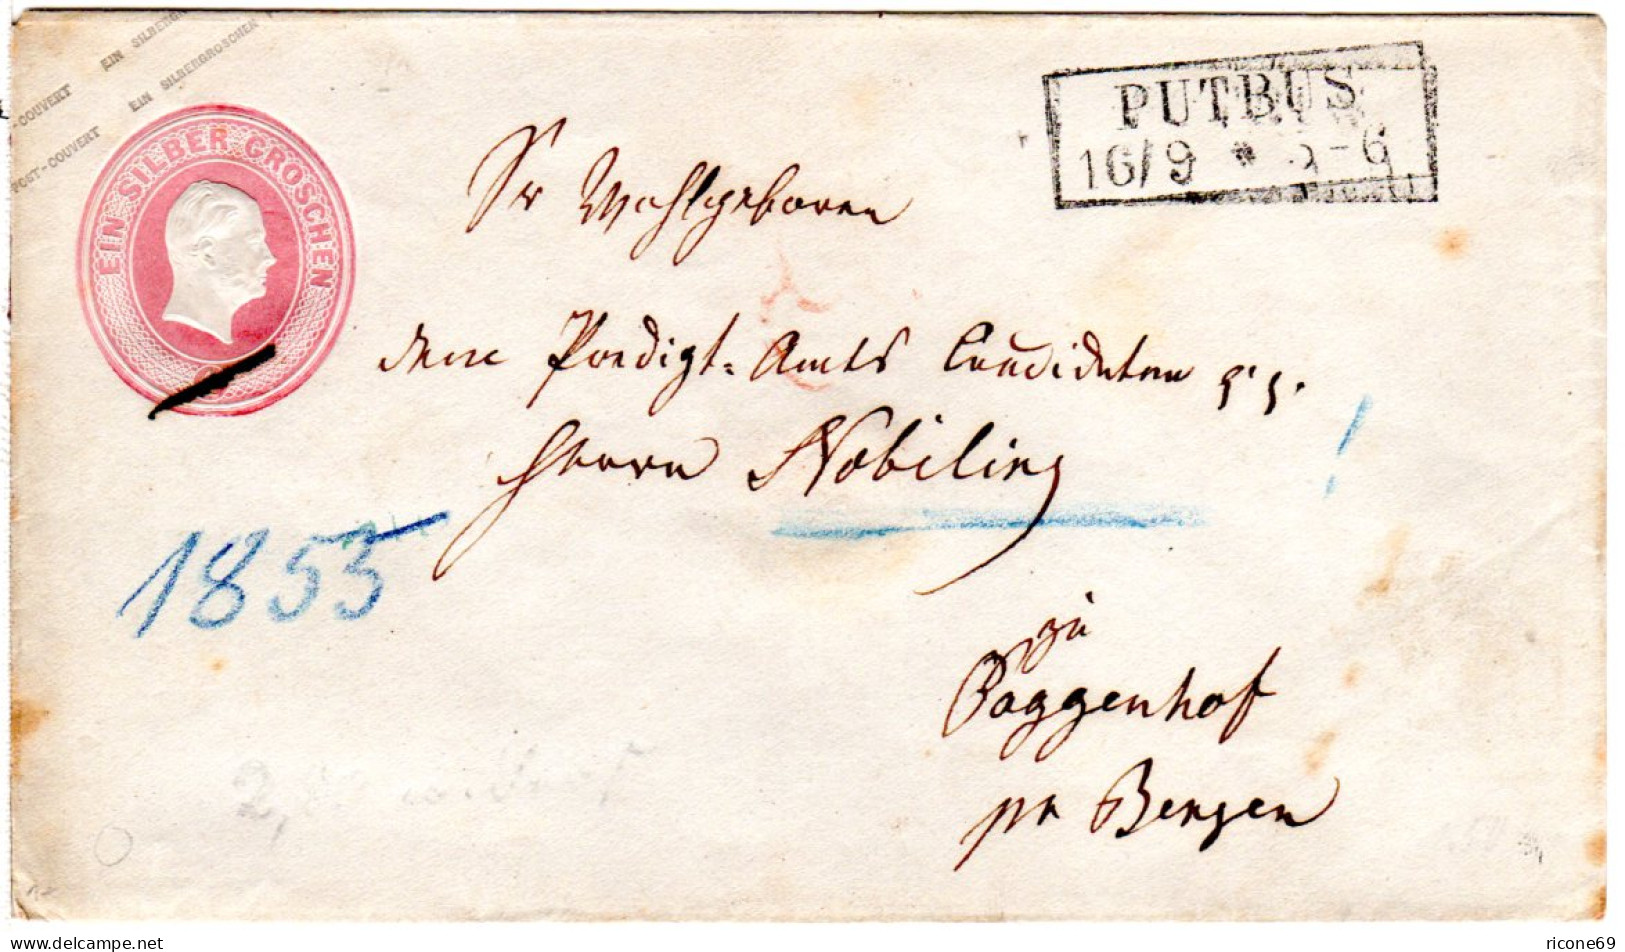 EIN SILBERGROSCHEN
POST-COUVERT EIN SILBERGROSCHEN
EIN SILBER GROSCHEN
PUTBUS
16/9 * 5-6
Sr Wohlgeboren
dem Predigt-Amts Candidaten
Herrn Nobiling
!
1853
zu
Paggenhof
pr Bergen
delcampe.net
ricone69